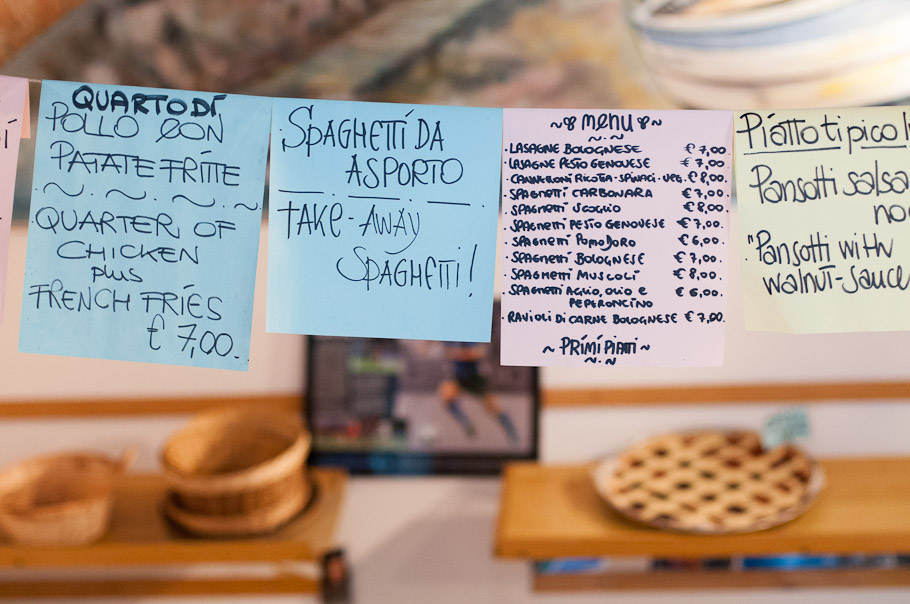 QUARTO DÍ
POLLO CON
PATATE FRITTE
QUARTER OF
CHICKEN
plus
FRENCH FRIES
€ 7,00.
SPAGHETTI DA
ASPORTO
TAKE-AWAY
SPAGHETTI!
menu
·LASAGNE BOLOGNESE € 7,00
·LASAGNE PESTO GENOVESE € 7,00
·CANNELLONI RICOTTA-SPINACI-VEG. € 8,00.
·SPAGHETTI CARBONARA € 7,00.
·SPAGHETTI SCOGLIO € 8,00.
·SPAGHETTI PESTO GENOVESE € 7,00.
·SPAGHETTI POMODORO € 6,00.
·SPAGHETTI BOLOGNESE € 7,00.
·SPAGHETTI MUSCOLI € 8,00.
·SPAGHETTI AGLIO, OLIO E € 6,00.
PEPERONCINO
·RAVIOLI DI CARNE BOLOGNESE € 7,00.
~ PRIMI PIATTI ~
Piatto tipico
Pansotti salsa
"Pansotti with
walnut-sauce